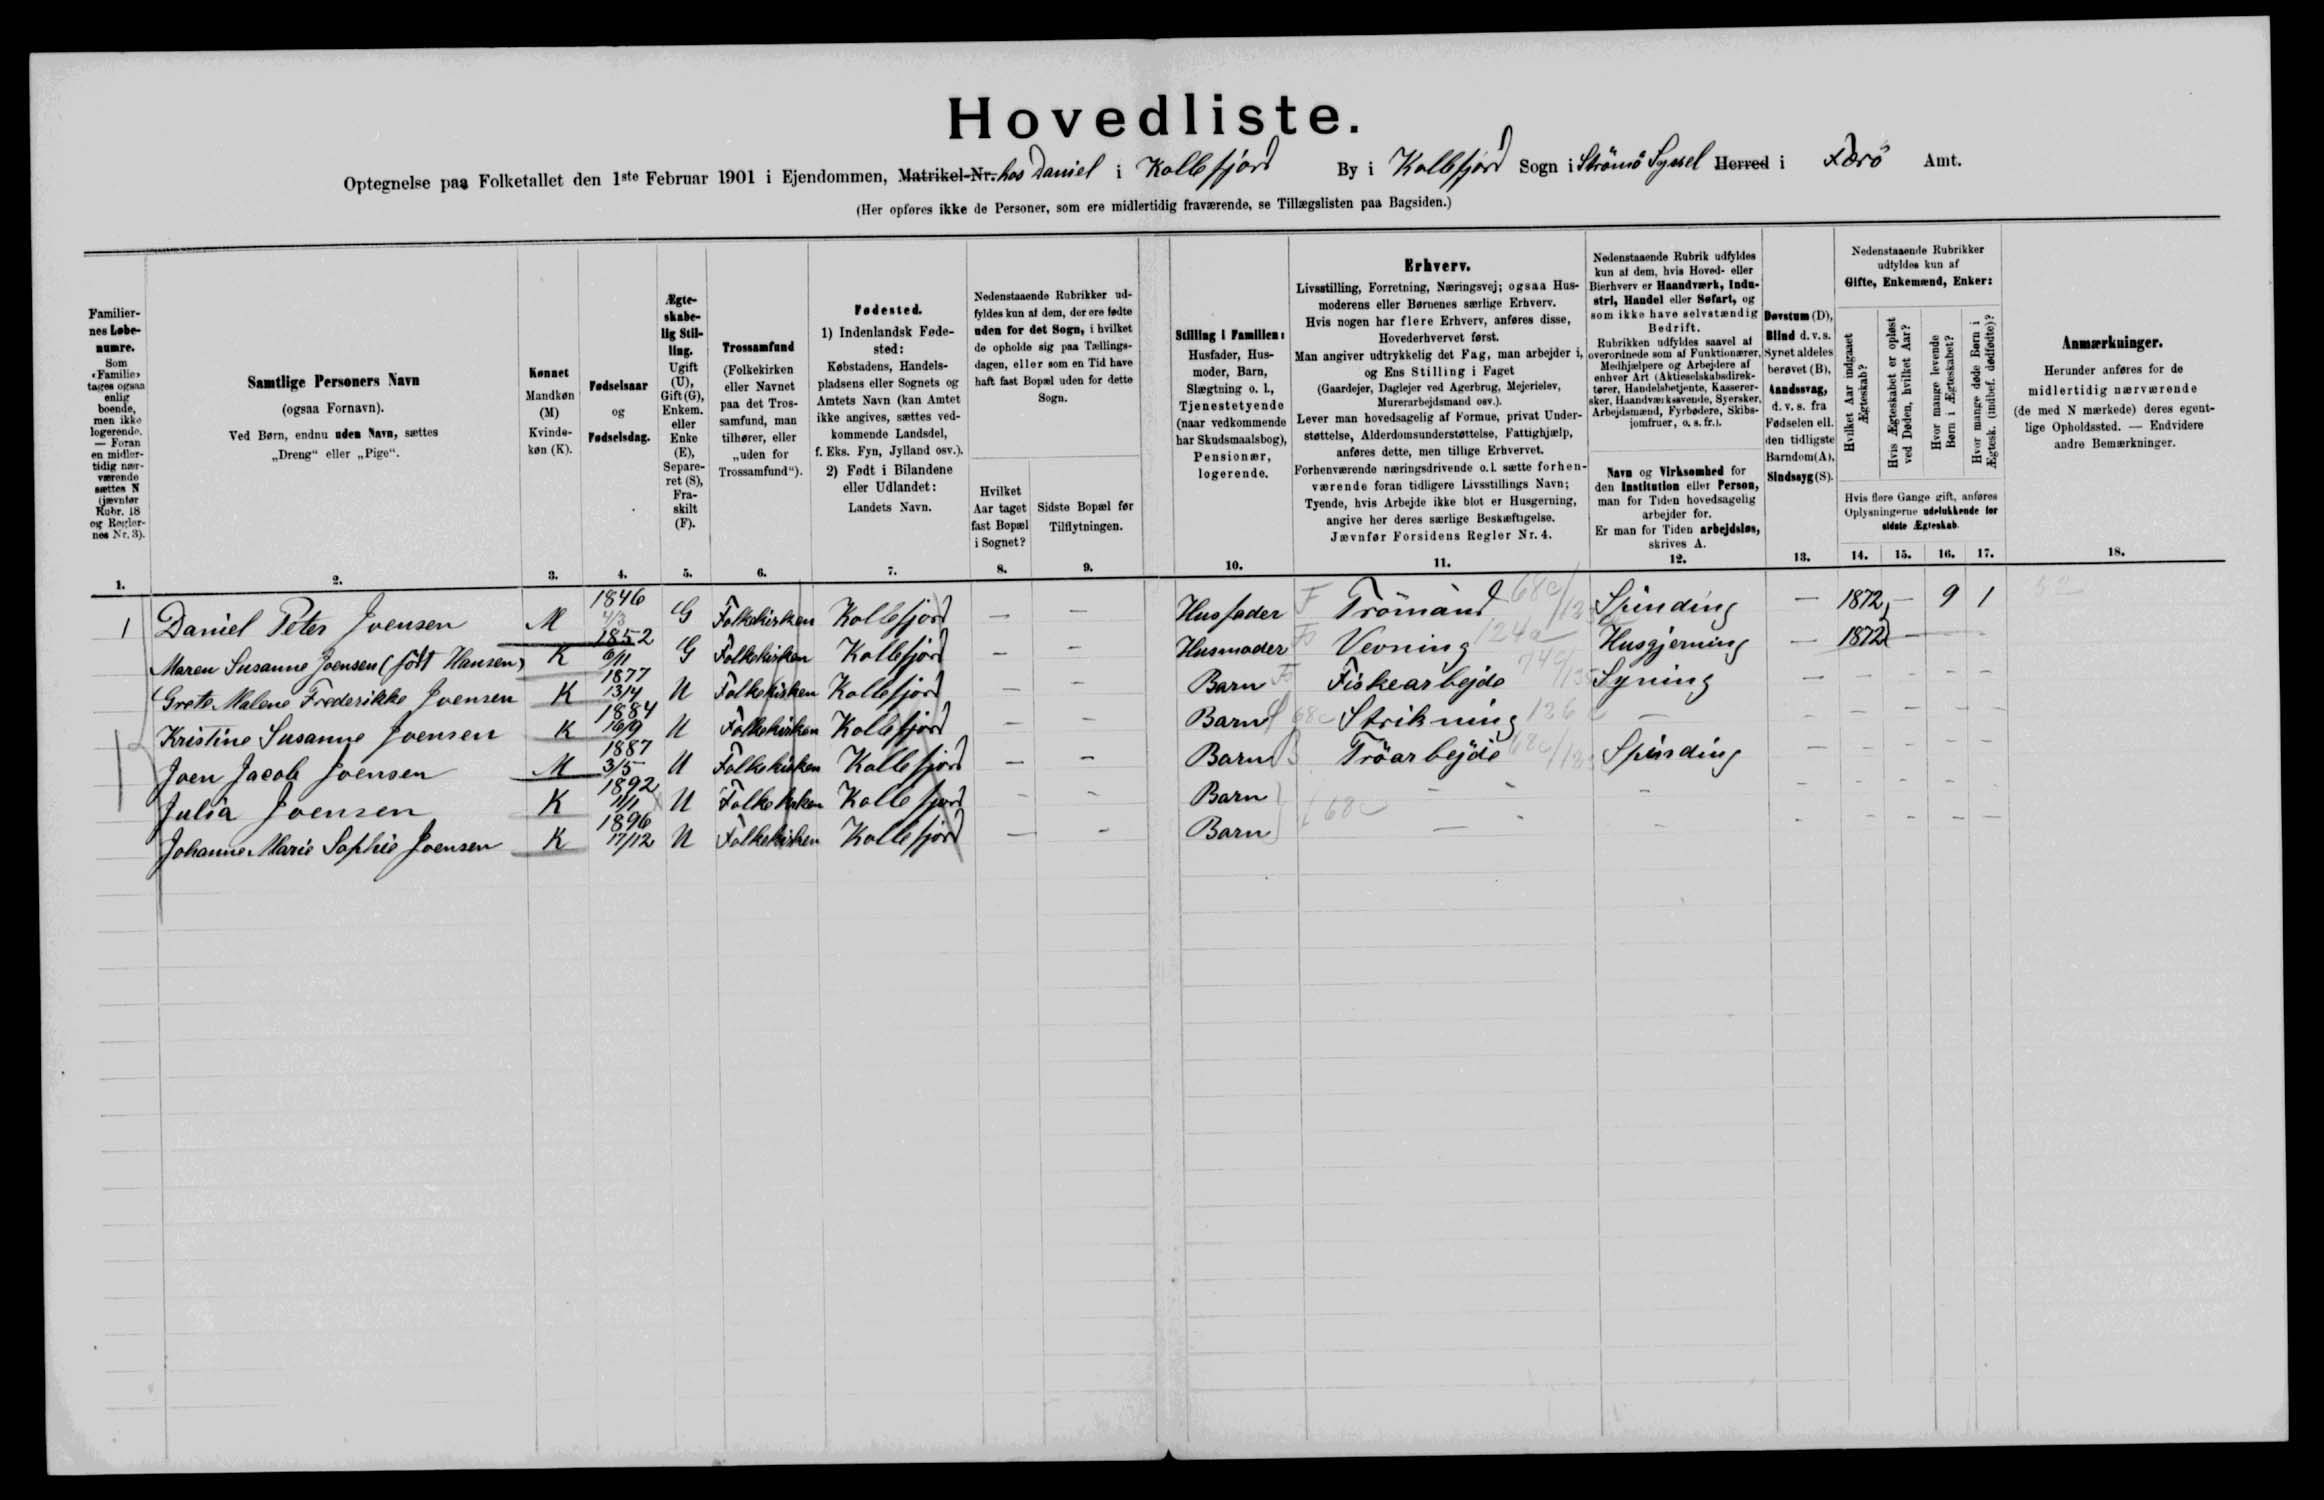 Hovedliste.
Optegnelse paa Folketallet den 1ste Februar 1901 i Ejendommen, Matrikel-Nr. hos Daniel i Kollefjord By i Kollefjord Sogn i Strömö Syssel Herred i Færö Amt.
(Her opføres ikke de Personer, som ere midlertidig fraværende, se Tillægslisten paa Bagsiden.)
Familier-
nes Løbe-
numre.
Som
«Familie»
tages ogsaa
enlig
boende,
men ikke
logerende.
— Foran
en midler-
tidig nær-
værende
sættes N
(jævnfør
Rubr. 18
og Regler-
nes Nr. 3).
1.
Samtlige Personers Navn
(ogsaa Fornavn).
Ved Børn, endnu uden Navn, sættes
„Dreng“ eller „Pige“.
2.
Kønnet
Mandkøn
(M)
Kvinde-
køn (K).
3.
Fødselsaar
og
Fødselsdag.
4.
Ægte-
skabe-
lig Stil-
ling.
Ugift
(U),
Gift (G),
Enkem.
eller
Enke
(E),
Separe-
ret (S),
Fra-
skilt
(F).
5.
Trossamfund
(Folkekirken
eller Navnet
paa det Tros-
samfund, man
tilhører, eller
„uden for
Trossamfund“).
6.
Fødested.
1) Indenlandsk Føde-
sted:
Købstadens, Handels-
pladsens eller Sognets og
Amtets Navn (kan Amtet
ikke angives, sættes ved-
kommende Landsdel,
f. Eks. Fyn, Jylland osv.).
2) Født i Bilandene
eller Udlandet:
Landets Navn.
7.
Nedenstaaende Rubrikker ud-
fyldes kun af dem, der ere fødte
uden for det Sogn, i hvilket
de opholde sig paa Tællings-
dagen, eller som en Tid have
haft fast Bopæl uden for dette
Sogn.
Hvilket
Aar taget
fast Bopæl
i Sognet?
8.
Sidste Bopæl før
Tilflytningen.
9.
Stilling i Familien:
Husfader, Hus-
moder, Barn,
Slægtning o. l.,
Tjenestetyende
(naar vedkommende
har Skudsmaalsbog),
Pensionær,
logerende.
10.
Erhverv.
Livsstilling, Forretning, Næringsvej; ogsaa Hus-
moderens eller Børnenes særlige Erhverv.
Hvis nogen har flere Erhverv, anføres disse,
Hovederhvervet først.
Man angiver udtrykkelig det Fag, man arbejder i,
og Ens Stilling i Faget
(Gaardejer, Daglejer ved Agerbrug, Mejerielev,
Murerarbejdsmand osv.).
Lever man hovedsagelig af Formue, privat Under-
støttelse, Alderdomsunderstøttelse, Fattighjælp,
anføres dette, men tillige Erhvervet.
Forhenværende næringsdrivende o. l. sætte forhen-
værende foran tidligere Livsstillings Navn;
Tyende, hvis Arbejde ikke blot er Husgerning,
angive her deres særlige Beskæftigelse.
Jævnfør Forsidens Regler Nr. 4.
11.
Nedenstaaende Rubrik udfyldes
kun af dem, hvis Hoved- eller
Bierhverv er Haandværk, Indu-
stri, Handel eller Søfart, og
som ikke have selvstændig
Bedrift.
Rubrikken udfyldes saavel af
overordnede som af Funktionærer,
Medhjælpere og Arbejdere af
enhver Art (Aktieselskabsdirek-
tører, Handelsbetjente, Kasserer-
sker, Haandværkssvende, Syersker,
Arbejdsmænd, Fyrbødere, Skibs-
jomfruer, o. s. fr.).
Navn og Virksomhed for
den Institution eller Person,
man for Tiden hovedsagelig
arbejder for.
Er man for Tiden arbejdsløs,
skrives A.
12.
Døvstum (D),
Blind d. v. s.
Synet aldeles
berøvet (B),
Aandssvag,
d. v. s. fra
Fødselen ell.
den tidligste
Barndom (A),
Sindssyg (S).
13.
Nedenstaaende Rubrikker
udfyldes kun af
Gifte, Enkemænd, Enker:
Hvilket Aar indgaaet
Ægteskab?
Hvis Ægteskabet er opløst
ved Døden, hvilket Aar?
Hvor mange levende
Børn i Ægteskabet?
Hvor mange døde Børn i
Ægtesk. (indbef. dødfødte)?
Hvis flere Gange gift, anføres
Oplysningerne udelukkende for
sidste Ægteskab.
14. 15. 16. 17.
Anmærkninger.
Herunder anføres for de
midlertidig nærværende
(de med N mærkede) deres egent-
lige Opholdssted. — Endvidere
andre Bemærkninger.
18.
1 Daniel Peter Joensen M 1846 4/3 G Folkekirken Kollefjord — — Husfader F Trömand 68c/ Spinding — 1872 — 9 1 52
Maren Susanne Joensen (født Hansen) K 1852 6/11 G Folkekirken Kollefjord — — Husmoder Vevning 124a Husgjerning — 1872 —
Grete Malene Frederikke Joensen K 1877 13/4 U Folkekirken Kollefjord — — Barn Fiskearbejde 74c/ Syning — — — — —
Kristine Susanne Joensen K 1884 16/9 U Folkekirken Kollefjord — — Barn 68c Strikning 126 — — — — — —
Joen Jacob Joensen M 1887 3/5 U Folkekirken Kollefjord — — Barn Tröarbejde 68c/ Spinding — — — — —
Julia Joensen K 1892 11/1 U Folkekirken Kollefjord — — Barn — — — — — — —
Johanne Marie Sophie Joensen K 1896 17/12 U Folkekirken Kollefjord — — Barn 68c — — — — — — —